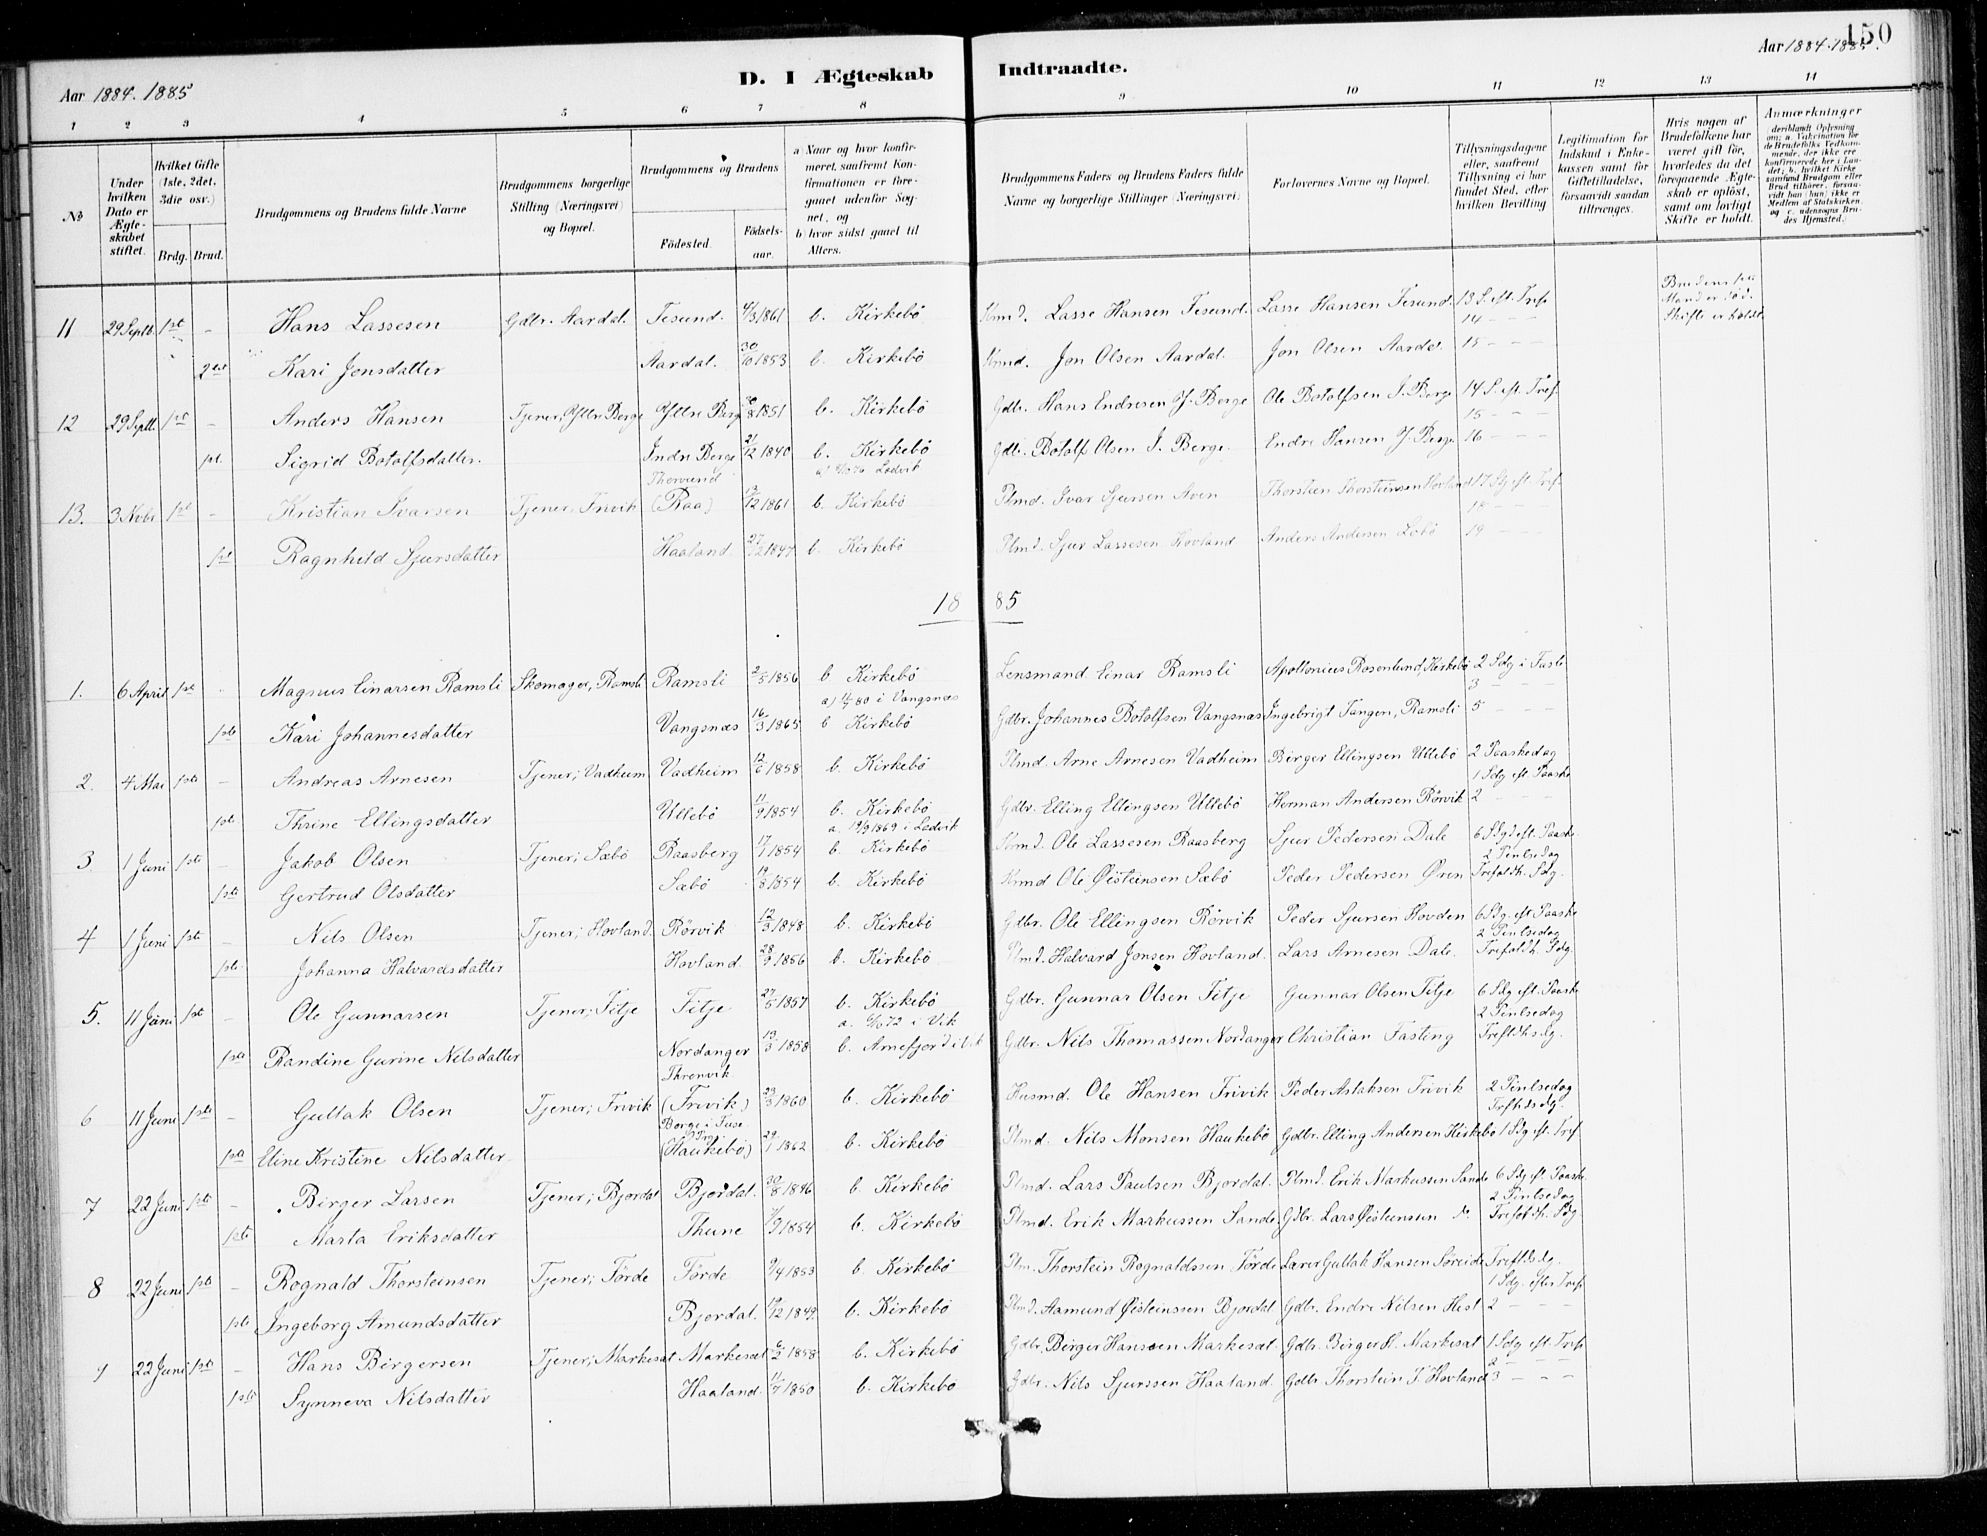 150
Aar 1884. 1885
D. I Ægteskab Indtraadte.
Aar 1884. 1885.
1 2 3 4 5 6 7 8 9 10 11 12 13 14
№
Under hvilken Dato er Ægteskabet stiftet.
Hvilket Gifte (1ste, 2det, 3die osv.)
Brdg. Brud.
Brudgommens og Brudens fulde Navne
Brudgommens borgerlige Stilling (Næringsvei) og Bopæl.
Brudgommens og Brudens
Födested. Födsels-aar.
a Naar og hvor konfirmeret, saafremt Konfirmationen er foregaaet udenfor Sognet, og
b hvor sidst gaaet til Alters.
Brudgommens Faders og Brudens Faders fulde Navne og borgerlige Stillinger (Næringsvei)
Forlovernes Navne og Bopæl.
Tillysningsdagene eller, saafremt Tillysning ei har fundet Sted, efter hvilken Bevilling
Legitimation for Indskud i Enkekassen samt for Giftetilladelse, forsaavidt saadan tiltrænges.
Hvis nogen af Brudefolkene har været gift før, hvorledes da det foregaaende Ægteskab er oplöst, samt om lovligt Skifte er holdt.
Anmærkninger
deriblandt Oplysning om; a. Vakcination for de Brudefolks Vedkommende, der ikke ere konfirmerede her i Landet; b. hvilket Kirkesamfund Brudgom eller Brud tilhörer, forsaavidt han (hun) ikke er Medlem af Statskirken, og c. udensogns Brudes Hjemsted.
11 29 Septb. 1ste - Hans Lassesen Gdbr. Aardal. Tesund. 4/3 1861 b. Kirkebö Kmd. Lasse Hansen Tesund. Lasse Hansen Tesund. 13 S. eft. Tref. Brudens 1ste Mand er död. Skifte er holdt
14 - - -
2det Kari Jonsdatter Aardal. 30/10 1853 b. Kirkebö Kmd. Jon Olsen Aardal. Jon Olsen Aardal 15 - - -
12 29 Septb. 1ste - Anders Hansen Tjener, Yttre Berge Yttre Berge 8 1851 b. Kirkebö Gdbr. Hans Endresen Y. Berge Ole Botolfsen I. Berge 14 S. eft. Tref.
15 - - -
1ste Sigrid Botolfsdatter. Indre Berge 21/12 1840 b. Kirkebö Gdbr. Botolf Olsen I. Berge. Endre Hansen Y. Berge 16 - - -
13. 3 Novbr 1ste - Kristian Ivarsen Tjener, Trivik (Raa) 12 1861 b. Kirkebö Plmd. Ivar Sjursen Aven Thorstein Thorsteinsen Hovland 17 Sdg eft. Tref.
18 - - -
1ste Ragnhild Sjursdatter Haaland. 27/12 1847 b. Kirkebö Plmd. Sjur Lassesen Hovland Anders Andersen Lobö 19 - - -
18 85
1. 6 April 1ste - Magnus Einarsen Ramsli Skomager, Ramsli Ramsli 2/5 1856 b Kirkebö Lensmand Einar Ramsli Apollonius Rosenlund, Kirkebö 2 Sdg i Faste
3 - -
1ste Kari Johannesdatter Vangsnæs 16/3 1865 b Kirkebö Gdbr. Johannes Botolfsen Vangsnæs Ingebrigt Tangen, Ramsli 5 - -
2. 4 Mai 1ste - Andreas Arnesen Tjener; Vadheim Vadheim 12/6 1858 b. Kirkebö Plmd. Arne Arnesen Vadheim Birger Ellingsen Ullebö 2 Paaskedag
1 Sdg eft. Paaske
1ste Thrine Ellingsdatter Ullebö 11/9 1854 b. Kirkebö Gdbr. Elling Ellingsen Ullebö Herman Andersen Rörvik 2 - - -
a. 19/9 1869 i Ladvik
3 1 Juni 1ste - Jakob Olsen Tjener; Sæbö Raasberg 17/1 1854 b. Kirkebö Kmd. Ole Lassesen Raasberg Sjur Pedersen Dale 6 Sdg eft. Paaske
2 Pintsedag
1ste Gertrud Olsdatter Sæbö 19/8 1854 b. Kirkebö Kmd Ole Øisteinsen Sæbö Peder Pedersen Øren Trefoldh. Sdg.
4 1 Juni 1ste - Nils Olsen Tjener; Hovland. Rörvik 12/3 1848 b. Kirkebö Gdbr. Ole Ellingsen Rörvik Peder Sjursen Hovden 6 Sdg eft Paaske
2 Pintsedag
1ste Johanna Halvardsdatter Hovland. 28/9 1856 b. Kirkebö Plmd. Halvard Jonsen Hovland. Lars Arnesen Dale. Trefoldh. Sdg.
5. 11 Juni 1ste - Ole Gunnarsen Tjener; Fitje Fitje 27/5 1857 b. Kirkebö Gdbr. Gunnar Olsen Fitje Gunnar Olsen Fitje 6 Sdg eft. Paaske
2 Pintsedag
1ste Randine Gurine Nilsdatter Nordanger 13/3 1858 b. Arnefjord i Vik Gdbr. Nils Thomassen Nordanger Christian Fasting Treftdhsdg.
6 11 Juni 1ste - Gullak Olsen Tjener; Trivik Thronvik (Trivik) 23/3 1860 b. Kirkebö Husmd. Ole Hansen Trivik Peder Aslaksen Trivik 2 Pintsedag
Treftdsdg.
1ste Eline Kristine Nilsdatter (Haukebö) 29/1 1862 b. Kirkebö Plmd. Nils Monsen Haukebö Gdbr. Elling Andersen Kirkebö 1 Sdg eft. Tref.
7 22 Juni 1ste - Birger Larsen Tjener; Bjordal Bjordal. 30/8 1846 b. Kirkebö Plmd. Lars Paulsen Bjordal. Plmd. Erik Markussen Sande 6 Sdg eft. Paaske
2 Pintsedag
1ste Marta Eriksdatter Thune 9 1854 b. Kirkebö Plmd. Erik Markussen Sande. Gdbr. Lars Øisteinsen do. Trefoldh. Sdg.
8 22 Juni 1ste - Rognald Thorsteinsen Tjener; Förde Förde 9/4 1853 b. Kirkebö Plm. Thorstein Rognaldssen Förde Lærer Gullak Hansen Söreide Treftdsdg.
1 Sdg. efter Tref.
1ste Ingeborg Amundsdatter Bjordal. 12 1849. b. Kirkebö Plmd. Aamund Øisteinssen Bjordal Gdbr. Endre Nilsen Hest 2 - - -
9 22 Juni 1ste - Hans Birgersen Tjener; Markesæt Markesæt 6/2 1858 b. Kirkebö Gdbr. Birger Hansen Markesæt. Gdbr. Birger H. Markesæt 1 Sdg eft. Tref.
2 - - -
1ste Synneva Nilsdatter Haaland. 7 1850 b. Kirkebö Gdbr. Nils Sjurssen Haaland. Gdbr Thorstein T. Hovland 3 - - -